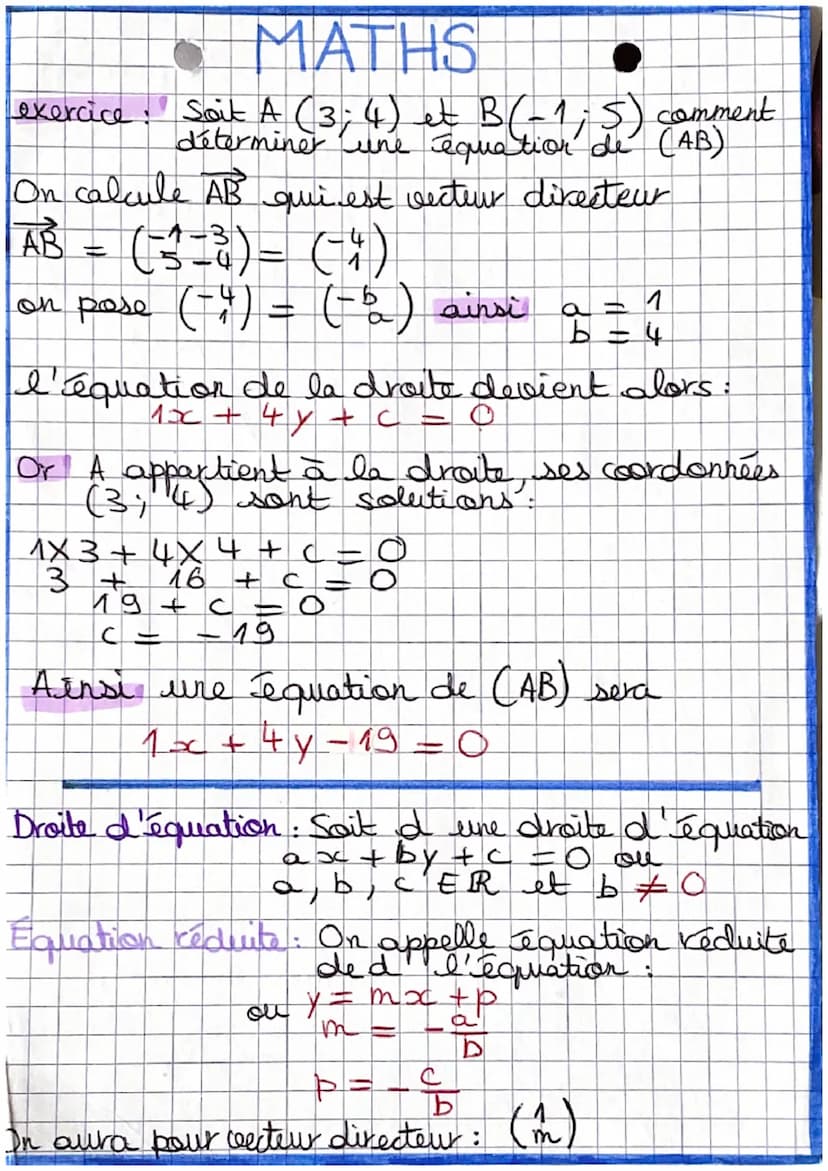 MATHS
exercice : Soit A (3 ; 4) et B(-1 ; 5) comment
déterminer une équation de (AB)
On calcule \overrightarrow{AB} qui est vecteur directeur
\overrightarrow{AB} = \binom{-1-3}{5-4} = \binom{-4}{1}
on pose \binom{-4}{1} = \binom{-b}{a} ainsi a = 1
b = 4
l'équation de la droite devient alors :
1x + 4y + c = 0
Or A appartient à la droite, ses coordonnées
(3 ; 4) sont solutions :
1×3 + 4×4 + c = 0
3 + 16 + c = 0
19 + c = 0
c = -19
Ainsi une équation de (AB) sera
1x + 4y - 19 = 0
Droite d'équation : Soit d une droite d'équation
ax + by + c = 0 ou
a, b, c ∈ ℝ et b ≠ 0
Equation réduite : On appelle équation réduite
de d l'équation :
ou y = mx + p
m = -\frac{a}{b}
p = -\frac{c}{b}
On aura pour vecteur directeur : \binom{1}{m}